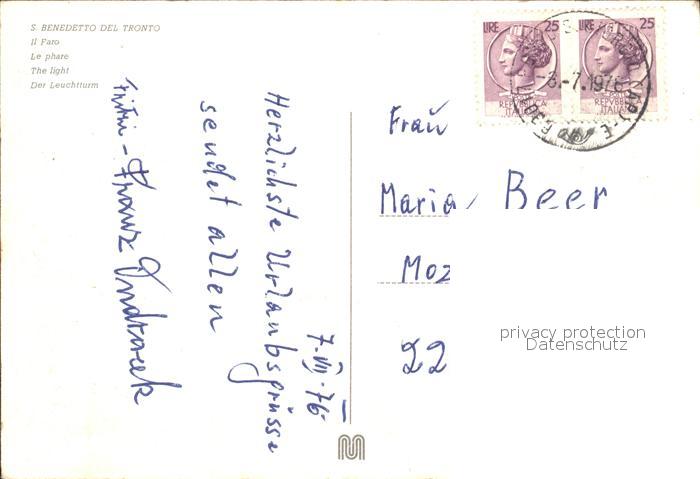 S. BENEDETTO DEL TRONTO
Il Faro
Le phare
The light
Der Leuchtturm
7. VII. 76
Herzlichste Urlaubsgrüsse
sendet allen
Franz
LIRE 25
REPVBBLICA
ITALIANA
LIRE 25
REPVBBLICA
ITALIANA
-7.1976
Frau
Maria Beer
Moz
22
privacy protection
Datenschutz